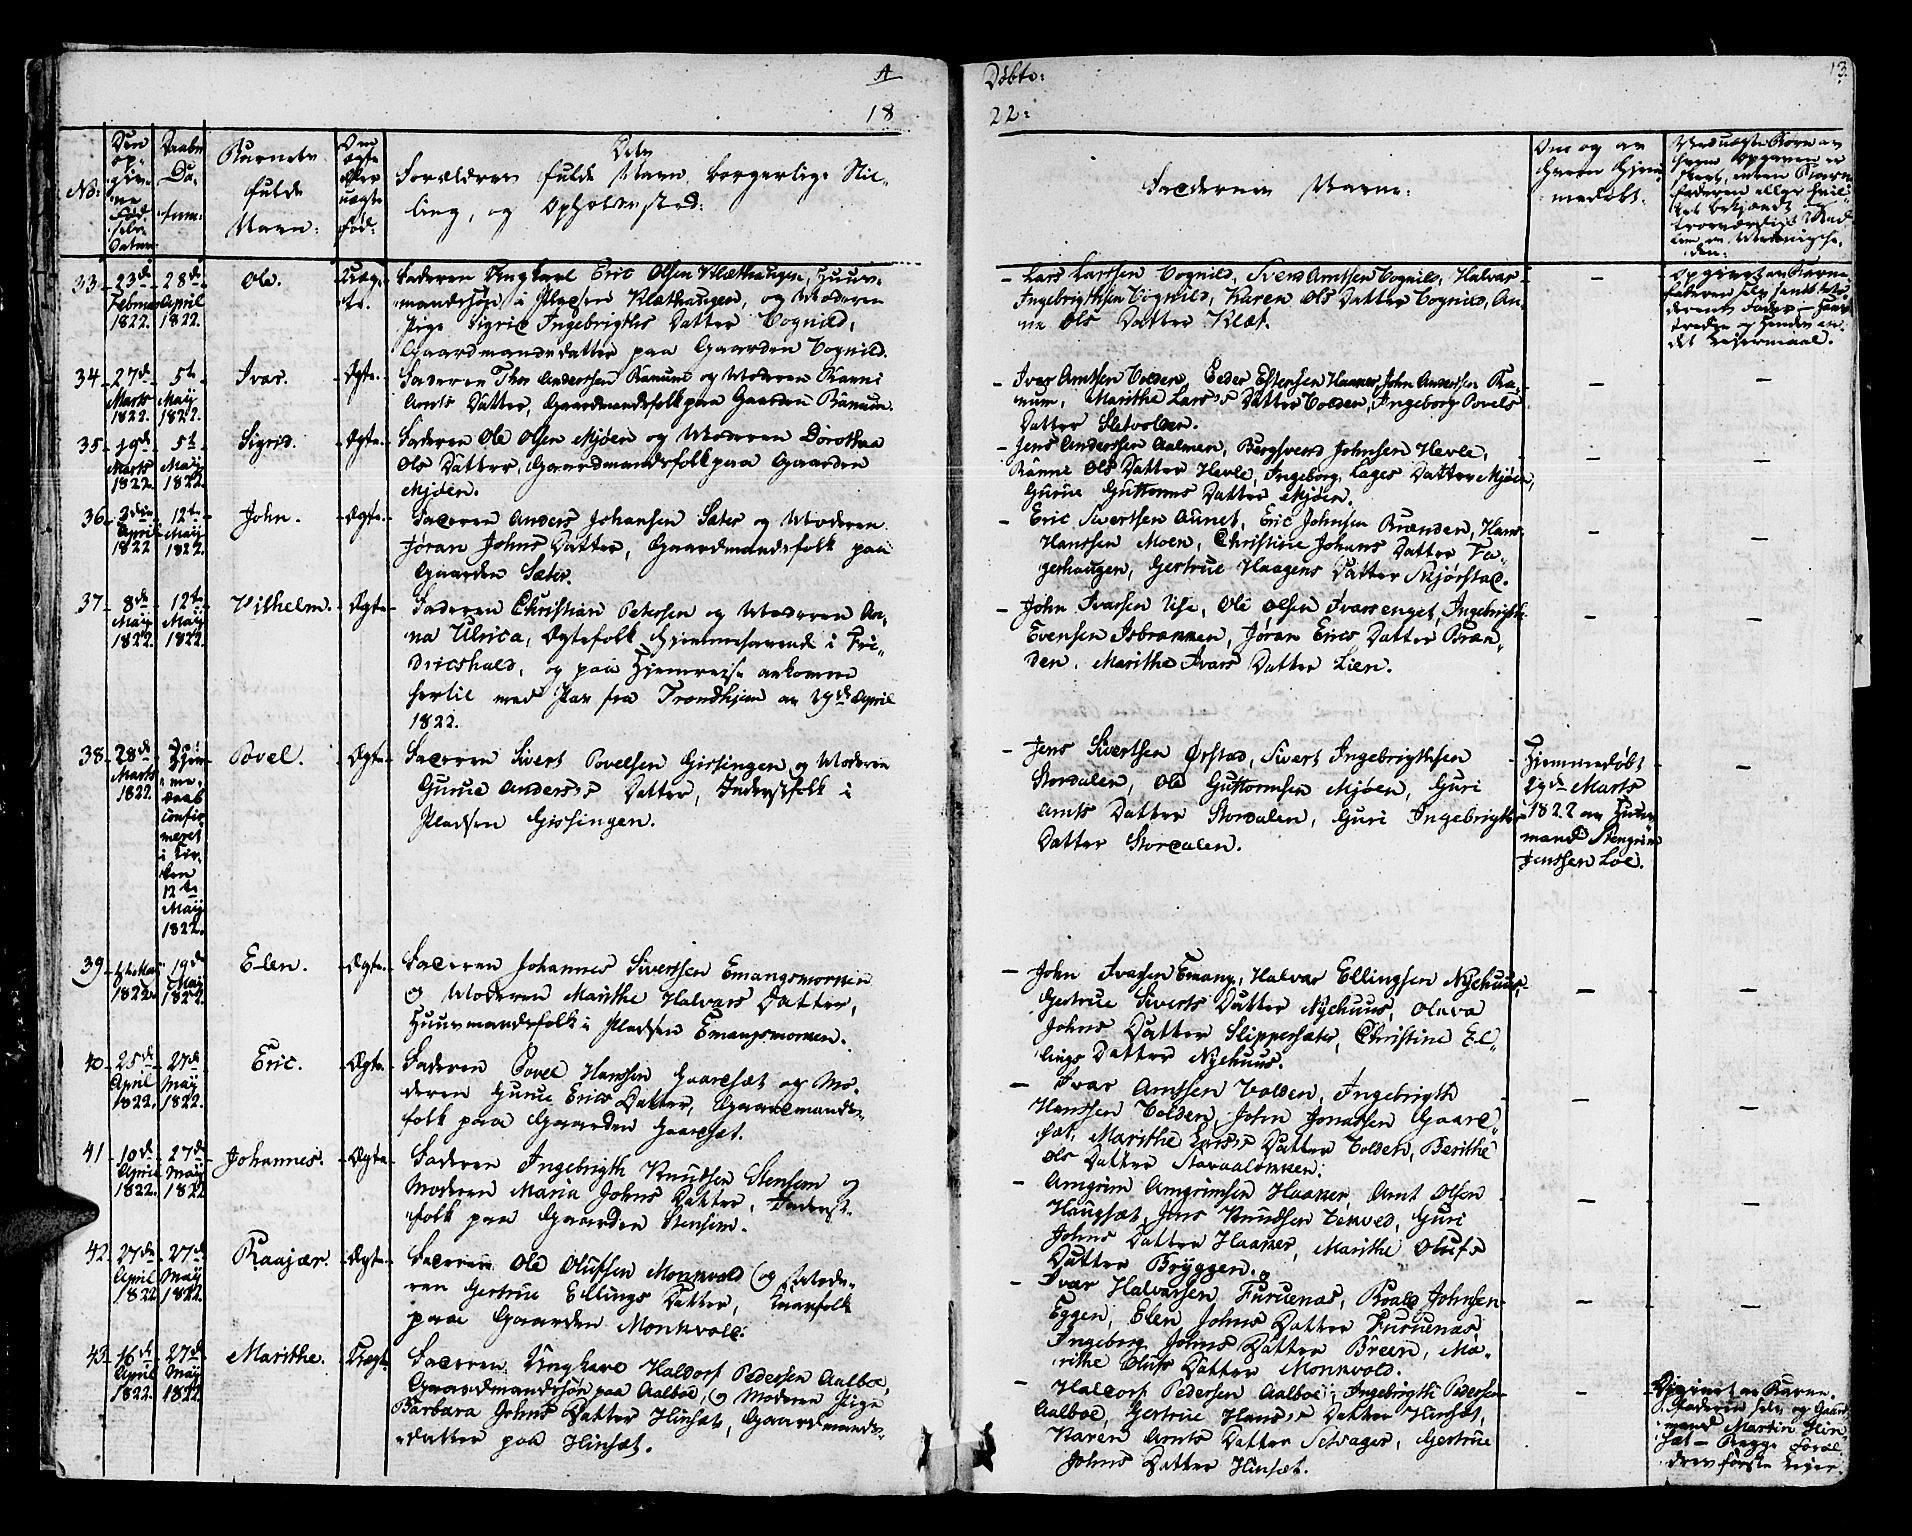 A
Døbte:
13.
18
22:
No:
Den
op-
giv-
ne
Fød-
sels-
Datum
Daabs
Da-
tum:
Barnets
fulde
Navn:
Om
ægte
eller
uægte
fød:
Dets
Forældres fulde Navn, borgerlige Stil-
ling, og Opholdssted:
Faddernes Navne:
Om og av
hvem hjem-
medøbt.
33. 23de Februar 1822. 28de April 1822. Ole. Uæg-
te.
Faderen Ungkarl Eric Olsen Klæthaugen, Huus-
mandssøn i Pladsen Klæthaugen, og Moderen
Pige Sigrid Ingebrigths Datter Vognild,
Gaardmandsdatter paa Gaarden Vognild.
– Lars Larssen Vognild, Svend Arntsen Vognild, Halvar
Ingebrigthsen Vognild, Karen Ols Datter Vognild, An-
ne Ols Datter Klæt.
–
34 27de Marts 1822. 5te May 1822. Ivar. Ægte.
Faderen Thor Anderssen Ramum og Moderen Karni
Arnts Datter, Gaardmandsfolk paa Gaarden Ramum.
– Ivar Arntsen Volden, Peder Estensen Haaker, John Anderssen Ra-
mum, Marithe Larss Datter Volden, Ingeborg Povels
Datter Sletvolden.
–
–
35 19de Marts 1822. 5te May 1822. Sigrid. Ægte.
Faderen Ole Olsen Mjøen og Moderen Dorothea
Ols Datter, Gaardmandsfolk paa Gaarden
Mjøen.
– Jens Anderssen Aalmen, Bergsvend Johnsen Hevle,
Ranne Ols Datter Hevle, Ingeborg Lages Datter Mjøen,
Gurue Guttorms Datter Mjøen.
–
–
36 2den April 1822 12te May 1822. John. Ægte.
Faderen Anders Johansen Sæter og Moderen
Jøran Johns Datter, Gaardmandsfolk paa
Gaarden Sæter.
– Eric Sivertsen Aunet, Eric Johnsen Brænden, Hans
Hanssen Moen, Christine Johans Datter Fa-
gerhaugen, Gertrue Haagens Datter Skjørstad.
–
–
37 8de May 1822. 12te May 1822. Vilhelm. Ægte
Faderen Christian Petersen og Moderen An-
na Ulrica, Ægtefolk hjemmehørende i Fri-
dricshald, og paa Hjemreise ankomne
hertil med Pas fra Trondhjem av 29de April
1822.
– John Ivarsen Vise, Ole Olsen Ivarsenget, Ingebrigth
Evensen Isbrækken, Jøran Erics Datter Bræn-
den, Marithe Ivars Datter Lien.
–
38 28de Marts 1822. Hjem-
me-
daab
confir-
meret
i Kir-
ken
12te
May
1822. Povel. Ægte
Faderen Sivert Povelsen Gissingen og Moderen
Gurue Anderss Datter, Inderstfolk i
Pladsen Gissingen.
– Jens Sivertsen Ørstad, Sivert Ingebrigthsen
Stordalen, Ole Guttormsen Mjøen, Guri
Arnts Datter Stordalen, Guri Ingebrigths
Datter Stordalen.
Hjemmedøbt
29de Marts
1822 av Huus-
mand Stengrim
Jenssen Loe.
–
39 1822. 19de May 1822. Elen. Ægte.
Faderen Johannes Sivertsen Emangsmoren
og Moderen Marithe Halvars Datter,
Huusmandsfolk i Pladsen Emangsmoren.
– John Ivarsen Emang, Halvar Ellingsen Nyehuus,
Gertrue Siverts Datter Nyehuus, Olava
Johns Datter Slippersæter, Christine El-
lings Datter Nyehuus.
–
–
40 25de April 1822. 27de May 1822. Eric. Ægte
Faderen Povel Hanssen Gaardsæt og Mo-
deren Gurue Erics Datter, Gaardmands-
folk paa Gaarden Gaardsæt.
– Ivar Arntsen Volden, Ingebrigth
Hanssen Volden, John Jonassen Gaard-
sæt, Marithe Larss Datter Volden, Berithe
Ols Datter
–
–
41 10de April 1822. 27de May 1822 Johannes. Ægte
Faderen Ingebrigth Knudsen Stensem og
Moderen Maria Johns Datter, Inderst-
folk paa Gaarden Stensem.
– Arngrim Arngrimsen Haaker, Arnt Olsen
Haugsæt, Jens Knudsen Tørved, Guri
Johns Datter Haaker, Marithe Olufs
Datter Bryggen.
–
–
42 27de April 1822 27de May 1822. Raajær. Ægte
Faderen Ole Olufsen Monkvold og Mode-
ren Gertrue Ellings Datter, Kaarfolk
paa Gaarden Monkvold.
– Ivar Halvarsen Furuenæs, Roald Johnsen
Eggen, Elen Johns Datter Furuenæs,
Ingeborg Johns Datter Breen, Ma-
rithe Olufs Datter Monkvold.
–
–
43 16de April 1822. 27de May 1822. Marithe. Uægte
Faderen Ungkarl Haldors Pedersen Aalboe,
Gaardmandssøn paa Aalboe, og Moderen Pige
Barbara Johns Datter Hinsæt, Gaardmands-
datter paa Hinsæt.
– Haldors Pedersen Aalboe, Ingebrigth Pedersen
Aalboe, Gertrue Hanss Datter Hinsæt,
Karen Arnts Datter Selvager, Gertrue
Johns Datter Hinsæt.
–
Opgivet av Barne-
faderen selv og Gaard-
mand Martin Hin-
sæt – Begge Foræl-
dres første Leier.